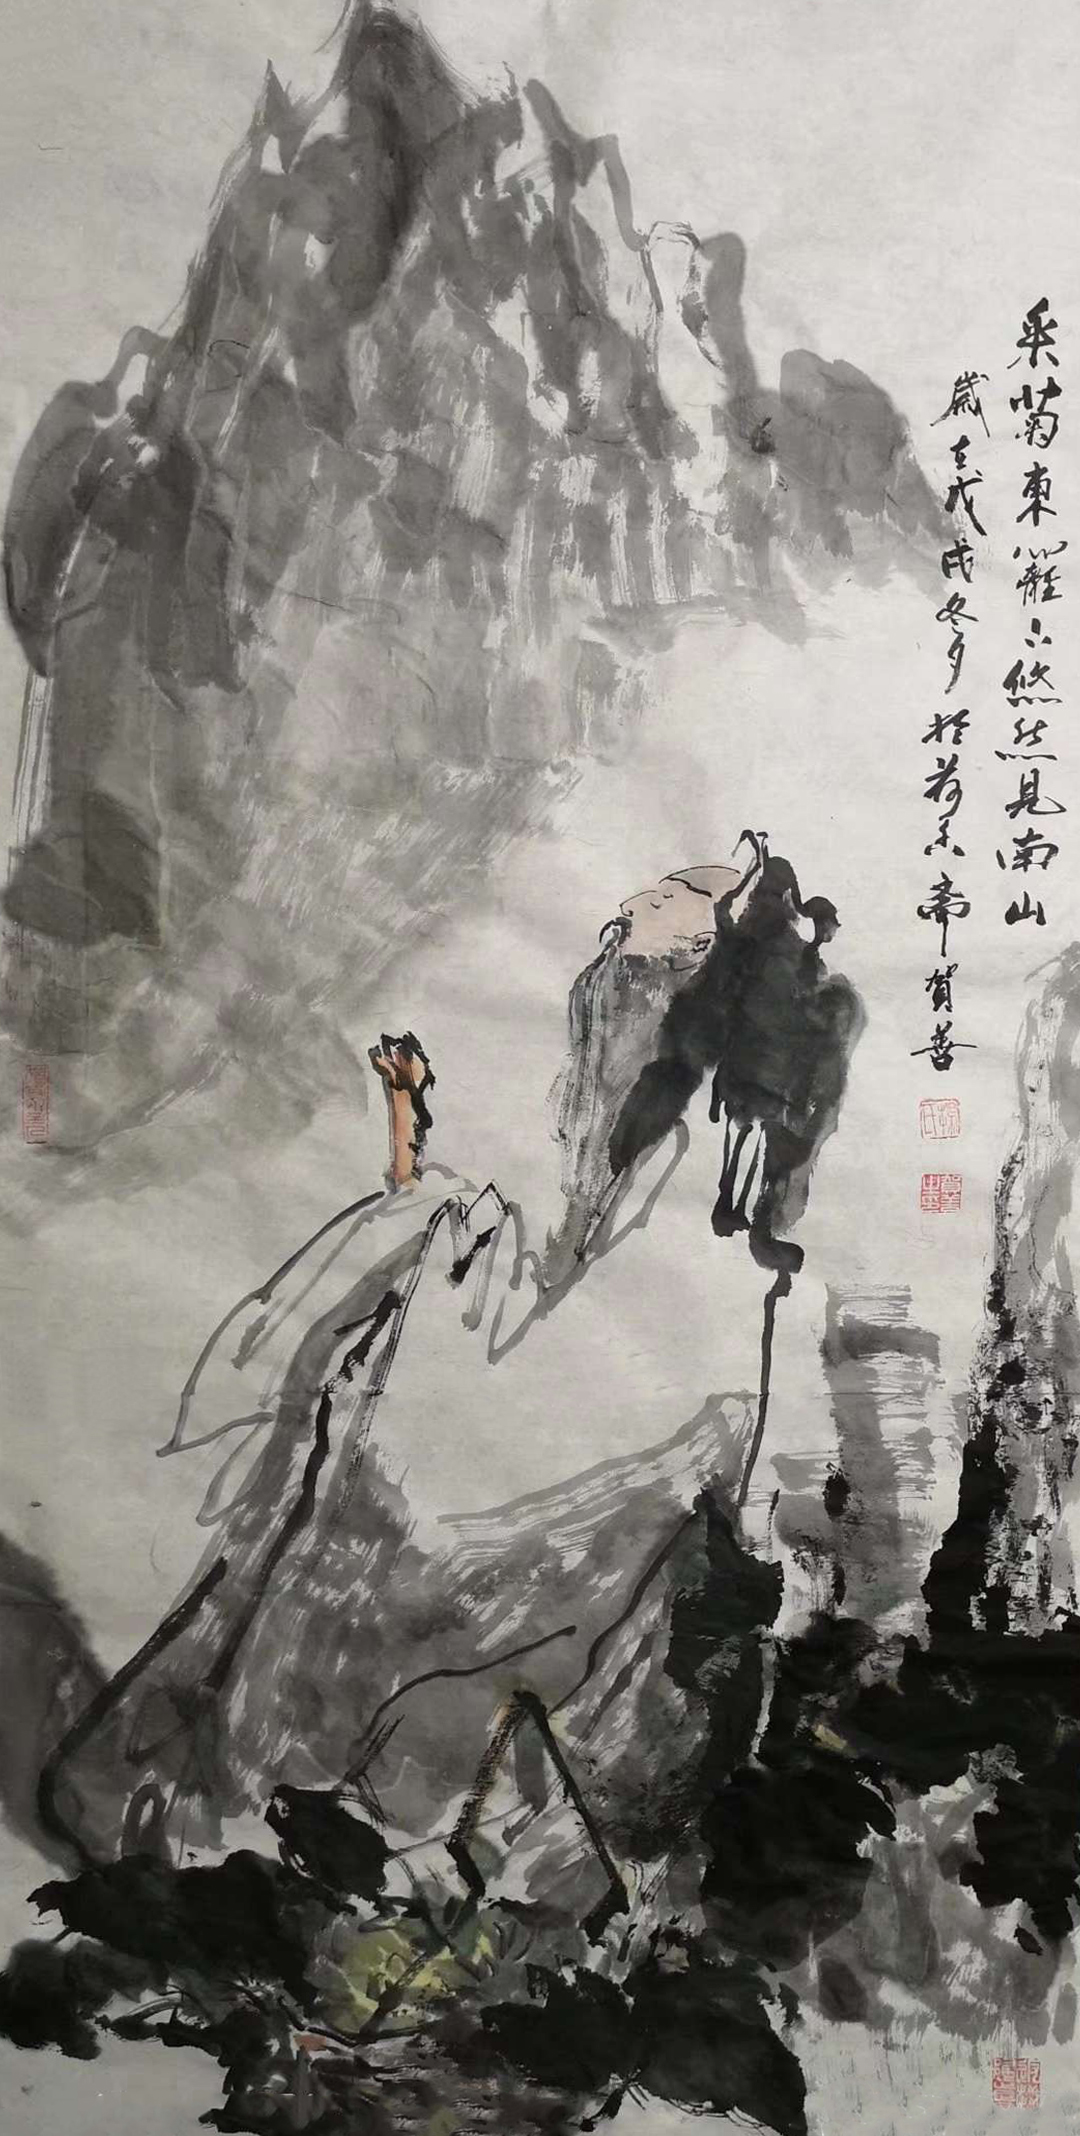 采菊東籬下悠然見南山
歲在戊戌冬夕於荷香齋賀善